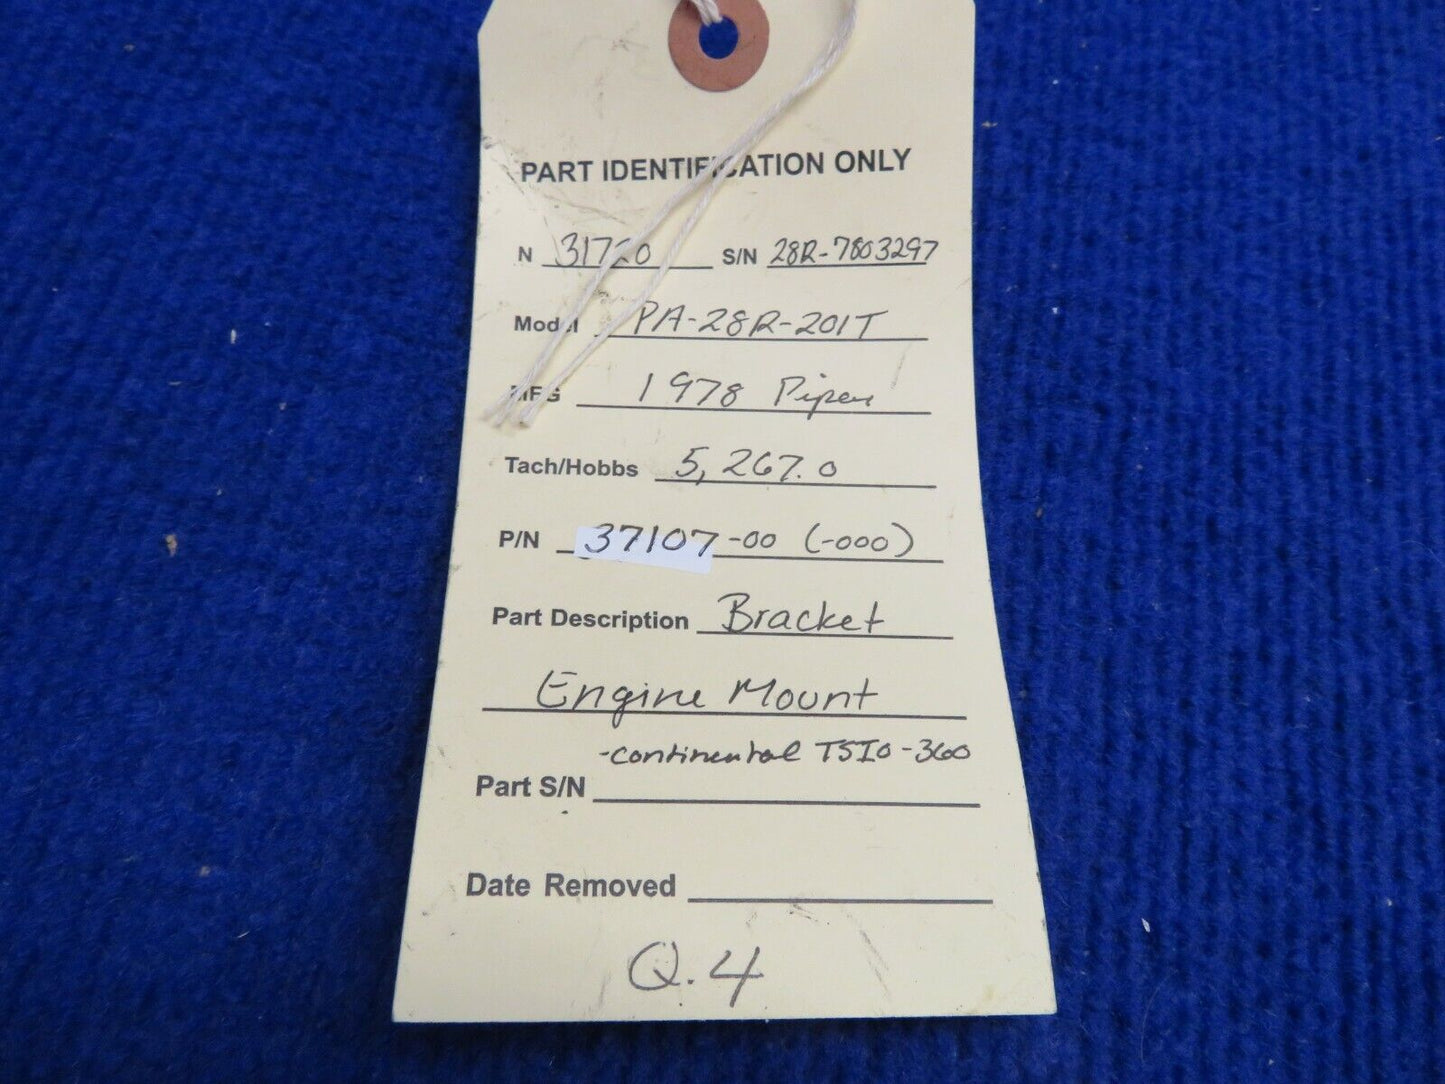 PART IDENTIFICATION ONLY
N 31720 S/N 28R-7803297
Model PA-28R-201T
MFG 1978 Piper
Tach/Hobbs 5,267.0
P/N 37107-00 (-000)
Part Description Bracket
Engine Mount
-continental TSIO-360
Part S/N
Date Removed
Q.4